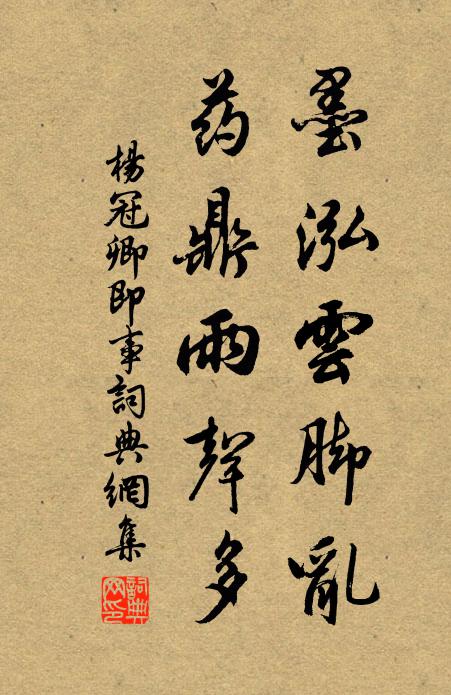 墨泓雲脚亂
药鼎雨聲多
楊冠卿即事詞典網集
詞典網印